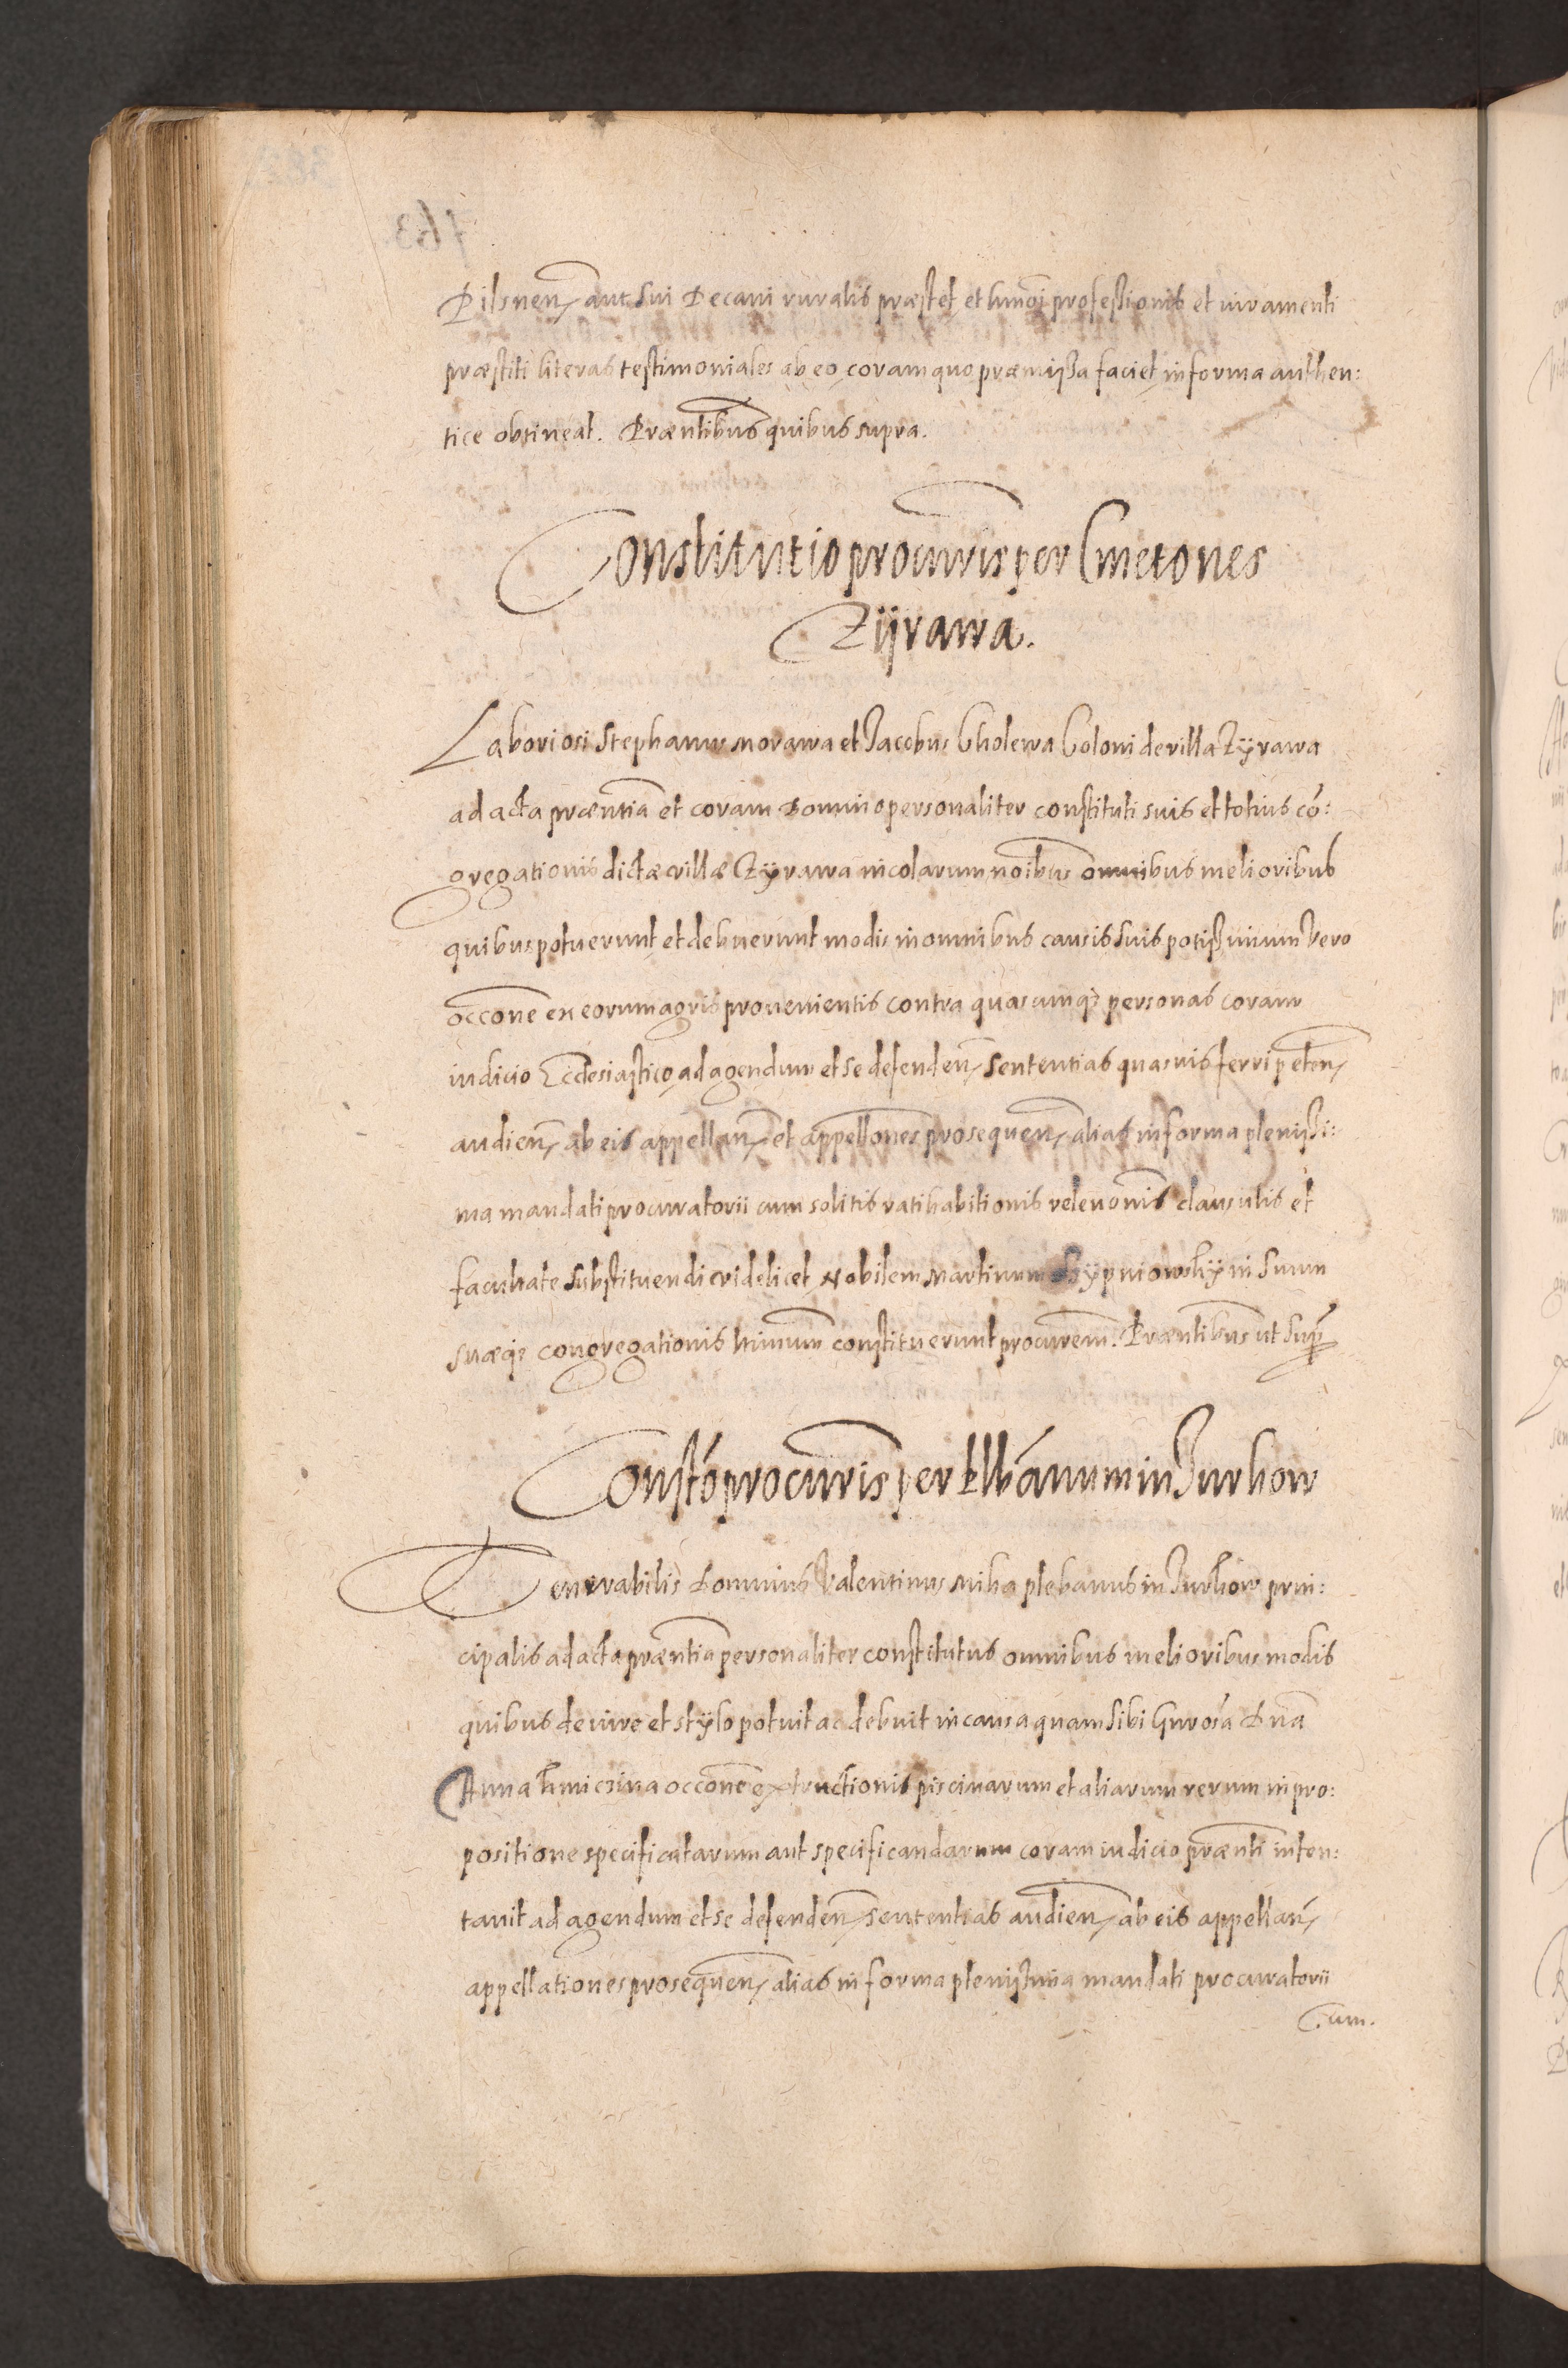 Pilsnen̄ aut sui Decani ruralis præstet et hmōi professionis et iuramenti
præstiti literas testimoniales ab eo coram quo præmissa faciet in forma authen:
tice obtineat. Præntibus quibus supra.
Constitutio procuris per Cmetones
Zÿrawa.
Laboriosi Stephanus Morawa et Jacobus Cholewa Coloni de villa Zÿrawa
ad acta præntia et coram Domino personaliter constituti suis et totius cō:
gregationis dictæ villæ Zÿrawa incolarum noībus omnibus melioribus
quibus potuerunt et debuerunt modis in omnibus causis suis potissimum vero
occone ex eorum agris provenientis contra quascumqꝫ personas coram
iudicio Ecclesiastico ad agendum et se defenden̄ sententias quasvis ferri peten̄
audien̄ ab eis appellan̄ et appellones prosequen̄ alias in forma plenissi:
ma mandati procuratorii cum solitis ratihabitionis relevonis clausulis et
facultate substituendi videlicet Nobilem Martinum ÿpniowskÿ in suum
suæqꝫ congregationis hmōum constituerunt procurem. Præntibus ut supra
Constō procuris per Plbānum in Jurkow
Venerabilis Dominus Valentinus Mika plebanus in Jurkow prin:
cipalis ad acta præntia personaliter constitutus omnibus melioribus modis
quibus de iure et stÿlo potuit ac debuit in causa quam sibi Gnrosa Dna
Anna occone extructionis piscinarum et aliarum rerum in pro:
positione specificatarum aut specificandarum coram iudicio prænti inten:
tavit ad agendum et se defenden̄ sententias audien̄ ab eis appellan̄
appellationes prosequen̄ alias in forma plenissima mandati procuratorii
Cum.